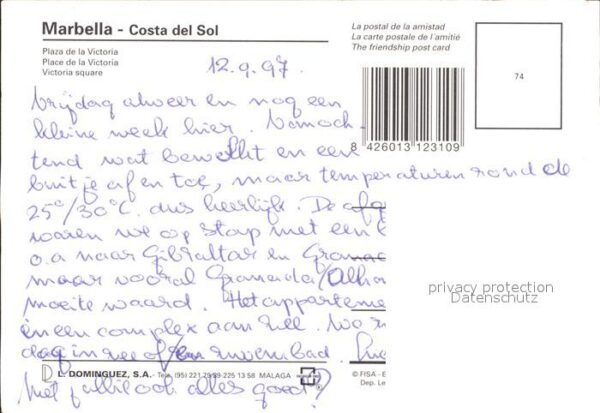 Marbella - Costa del Sol
La postal de la amistad
La carte postale de l'amitié
The friendship post card
Plaza de la Victoria
Place de la Victoria
Victoria square
12.9.97.
74
Vrijdag alweer en nog een
kleine week hier. Vanoch-
tend wat bewolkt en een
buitje af en toe, maar temperaturen rond de
25°/30°C. dus heerlijk. De afg
waren we op stap met een
o.a naar Gibraltar en Granad
maar vooral Granada/Alham
moeite waard. Het apparteme
in een complex aan zee. We
dag in zee of/en zwembad.
Met jullie ook alles goed?
8 426013 123109
privacy protection
Datenschutz
L. DOMINGUEZ, S.A. - MALAGA
© FISA - E
Dep. Le